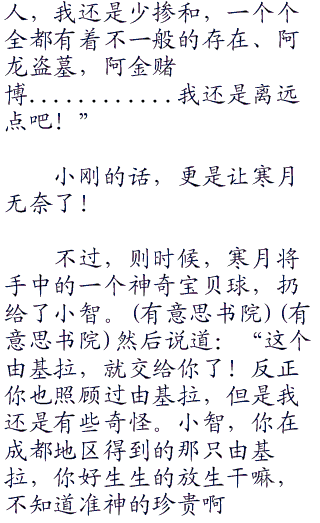 人，我还是少掺和，一个个
全都有着不一般的存在、阿
龙盗墓，阿金赌
博............我还是离远
点吧！”
小刚的话，更是让寒月
无奈了！
不过，则时候，寒月将
手中的一个神奇宝贝球，扔
给了小智。(有意思书院)(有
意思书院)然后说道：“这个
由基拉，就交给你了！反正
你也照顾过由基拉，但是我
还是有些奇怪。小智，你在
成都地区得到的那只由基
拉，你好生生的放生干嘛，
不知道准神的珍贵啊